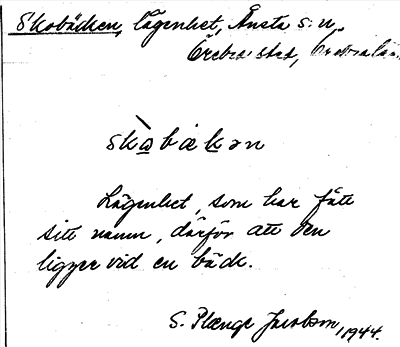 Skobäcken, lägenhet, Ånsta s:n,
Örebro stad, Örebro län.
skɷ̀bäkən
Lägenhet, som har fått
sitt namn, därför att den
ligger vid en bäck.
S. Plænge Jacobson, 1944.